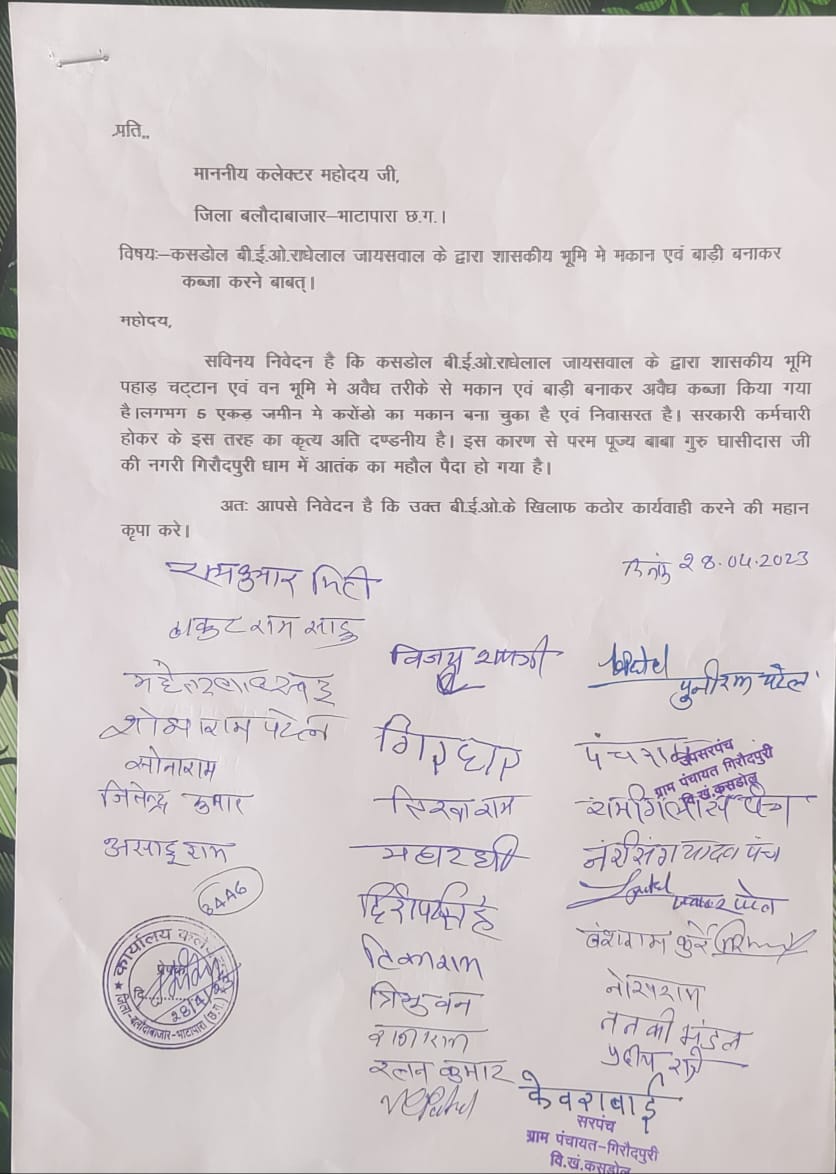 प्रति..
माननीय कलेक्टर महोदय जी,
जिला बलौदाबाजार–भाटापारा छ.ग.।
विषयः–कसडोल बी.ई.ओ.राधेलाल जायसवाल के द्वारा शासकीय भूमि मे मकान एवं बाड़ी बनाकर
कब्जा करने बाबत्।
महोदय,
सविनय निवेदन है कि कसडोल बी.ई.ओ.राधेलाल जायसवाल के द्वारा शासकीय भूमि
पहाड़ चट्टान एवं वन भूमि मे अवैध तरीके से मकान एवं बाड़ी बनाकर अवैध कब्जा किया गया
है।लगभग 5 एकड़ जमीन मे करोंडो का मकान बना चुका है एवं निवासरत है। सरकारी कर्मचारी
होकर के इस तरह का कृत्य अति दण्डनीय है। इस कारण से परम पूज्य बाबा गुरु घासीदास जी
की नगरी गिरौदपुरी धाम में आतंक का महौल पैदा हो गया है।
अतः आपसे निवेदन है कि उक्त बी.ई.ओ.के खिलाफ कठोर कार्यवाही करने की महान
कृपा करे।
28.04.2023
रामकुमार
राम साहू
विजय
पुनीराम पटेल
शोभाराम पटेल
सोनाराम
जितेन्द्र कुमार
असाडूराम
गिरधार
पंचराम
उपसरपंच
ग्राम पंचायत गिरौदपुरी
वि.खं.कसडोल
पंच
यादव पंच
पटेल
बंशराम कुर्रे
टिकाराम
त्रिभुवन
रतन कुमार
मंडल
3446
कार्यालय कले
जिला-बलौदाबाजार-भाटापारा (छ.ग.)
28/4/23
केवराबाई
सरपंच
ग्राम पंचायत-गिरौदपुरी
वि.खं.कसडोल